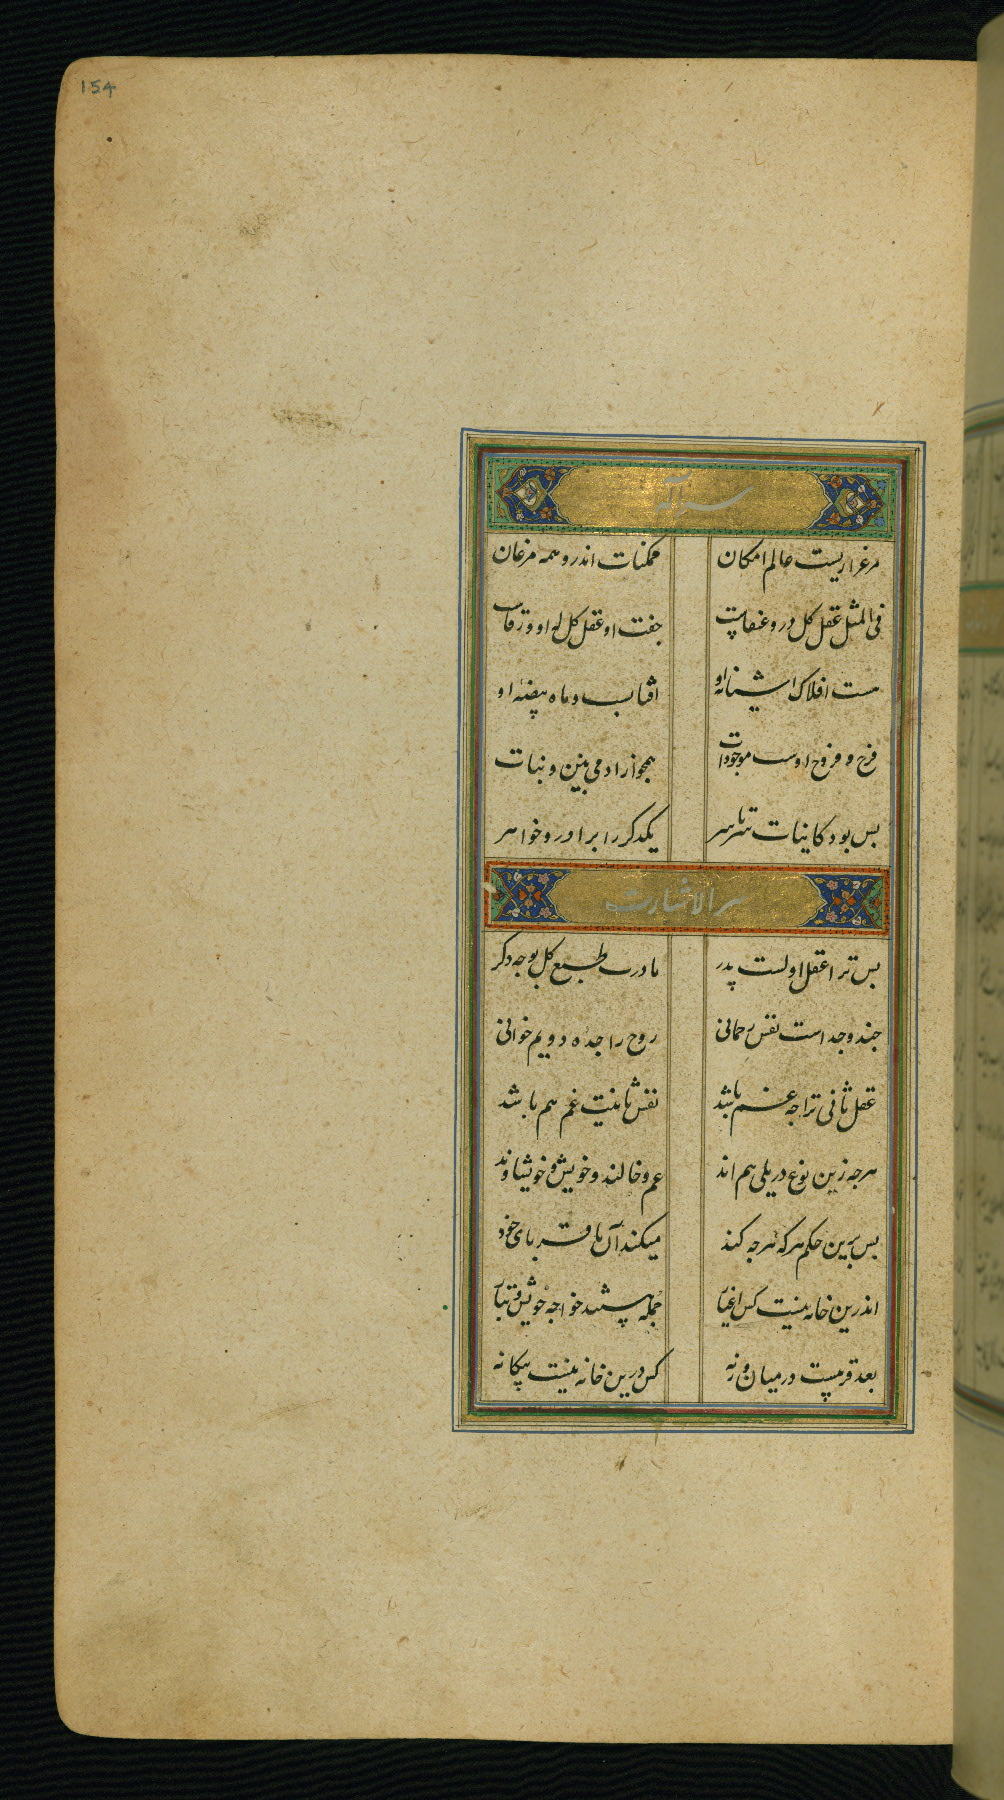 154
سر آله
مرغزاریست عالم امکان ممکنات اندرو همه مرغان
فی المثل عقل کل درو عنقاست جفت او عقل کل
هست افلاک آشیانه او آفتاب و ماه بیضه او
فرخ و فروخ اوست موجودات همجو از ادمی ببین و نبات
بس بود کاینات سرتاسر یکدکر را برادر و خواهر
سر الاشارت
بس ترا عقل اولست پدر مادرت طبع کل بوجه دکر
جد و جداست نفس رحمانی روح را جده دویم خوانی
عقل ثانی ترا جه عم باشد نفس ثانیت عم هم باشد
هرجه زین نوع در پلی هم اند عم و خالند و خویش و خویشاوند
بس برین حکم هرکه هرجه کند میکند آن با قربای خود
اندرین خانه نیست کس اغیار جمله هستند خواجه خویش و تبار
بعد قربیست در میان ورنه کس درین خانه نیست بیکانه